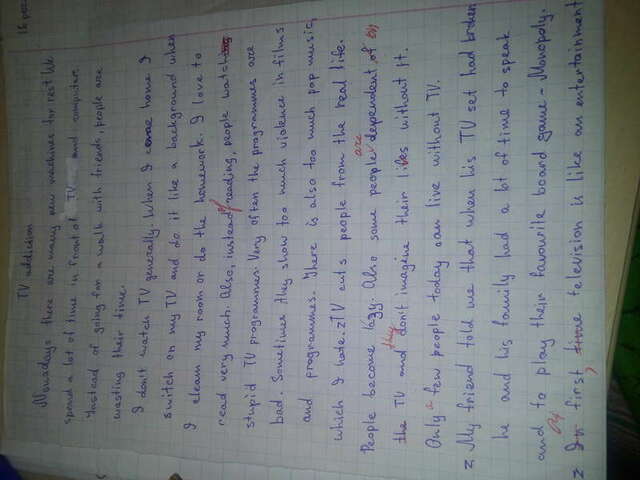 TV addiction
Nowadays there are many new machines for rest like
spend a lot of time in front of TV and computer.
Instead of going for a walk with friends, people are
wasting their time.
I don't watch TV generally. When I come home I
switch on my TV and do it like a background when
I clean my room or do the homework. I love to
read very much. Also, instead of reading, people watch
stupid TV programmes. Very often the programmes are
bad. Sometimes they show too much violence in films
and programmes. There is also too much pop music,
which I hate. Z TV cuts people from the real life.
People become lazy. Also some people are dependent of on
the TV and they don't imagine their lives without it.
Only a few people today can live without TV.
Z My friend told me that when his TV set had broken
he and his family had a lot of time to speak
and to play their favourite board game - Monopoly.
Z In At first, time television is like an entertainment